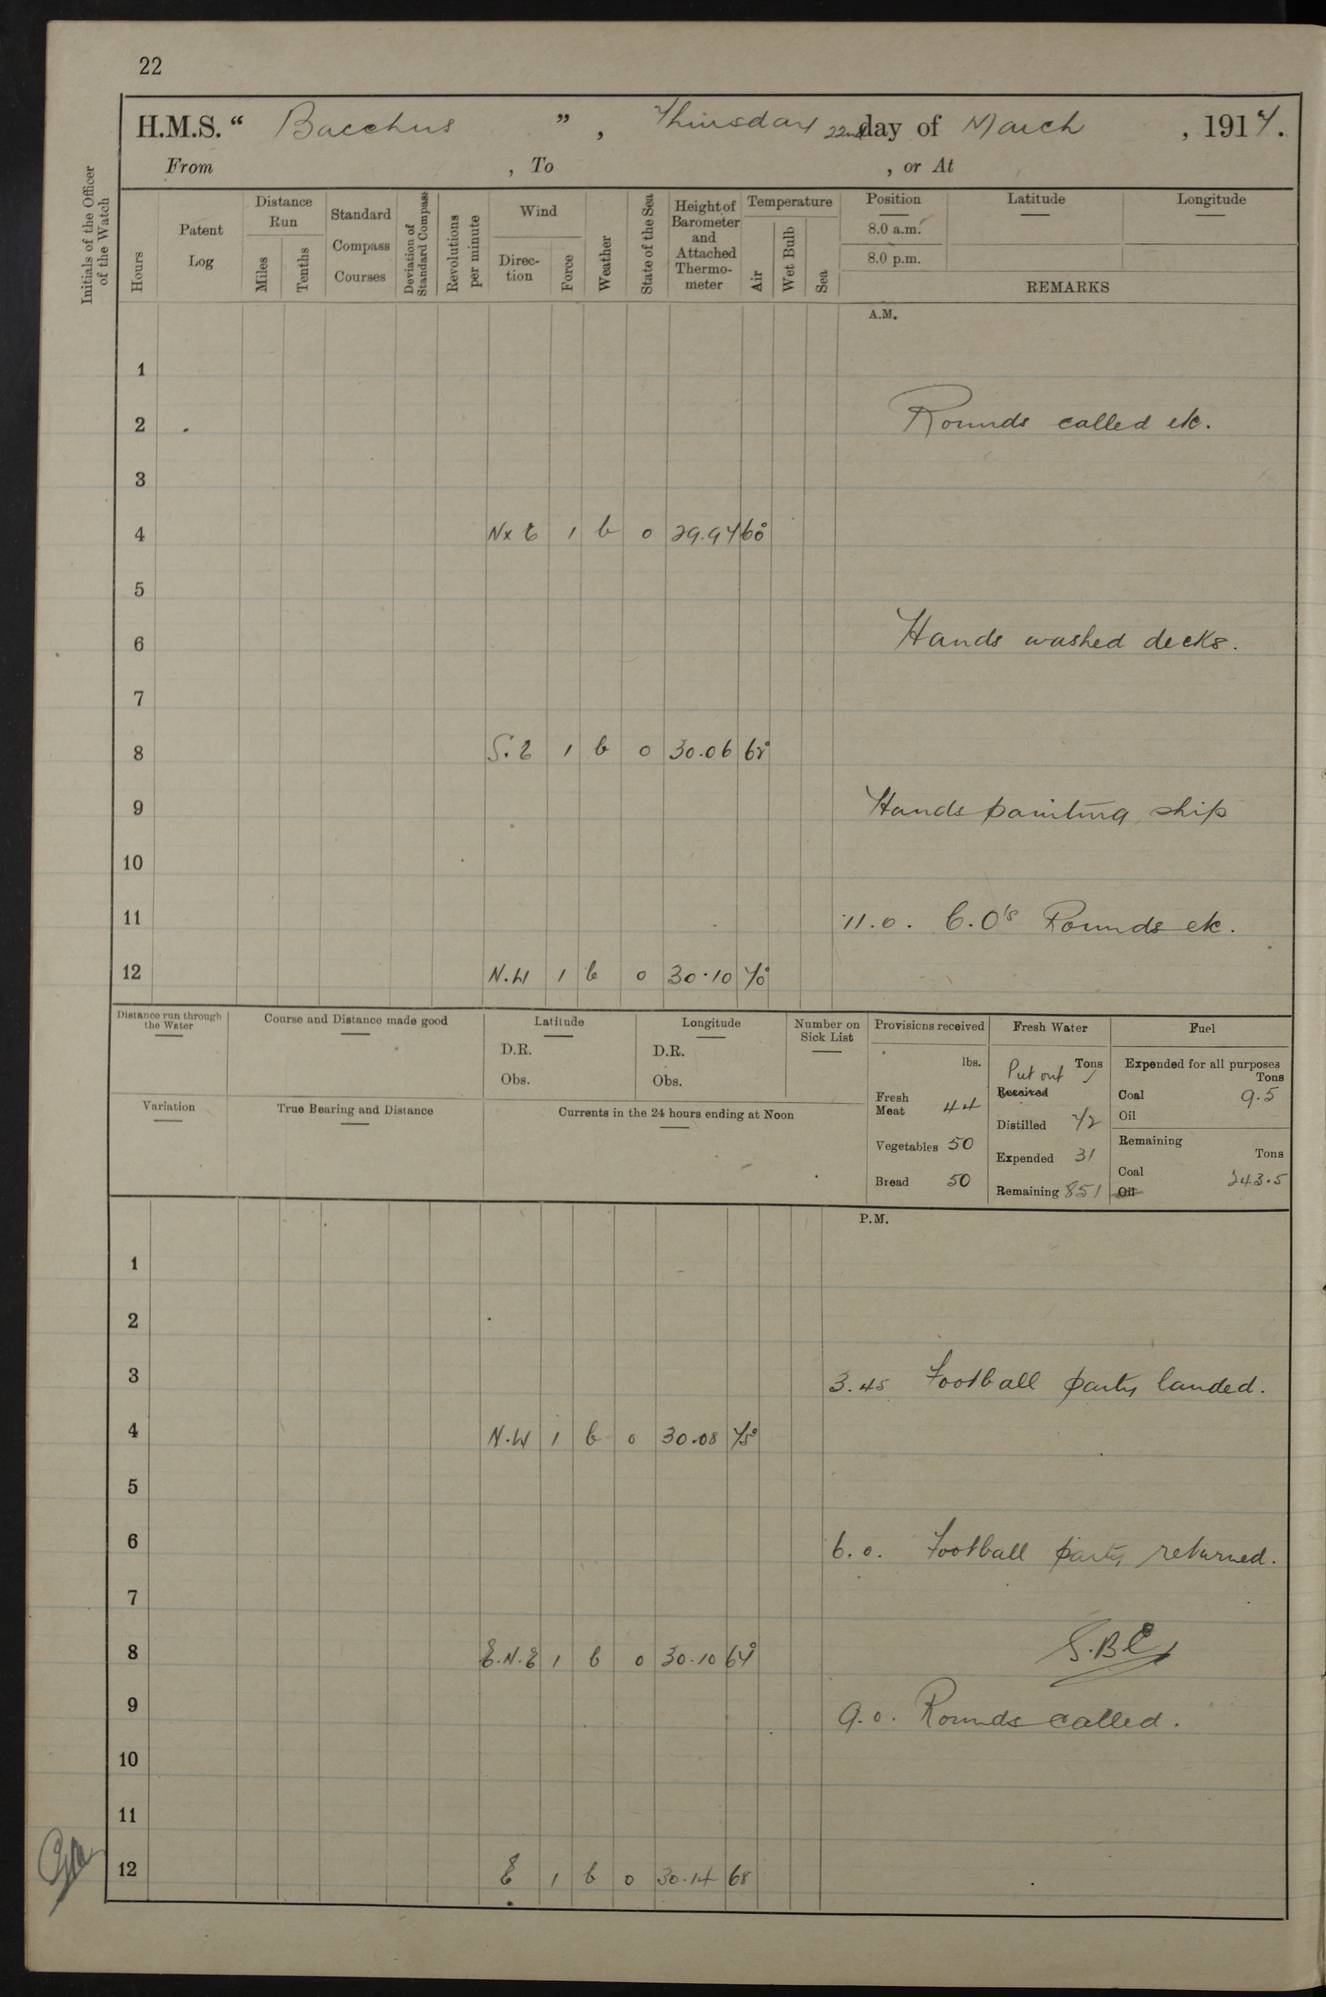 22
H.M.S. “ Bacchus ” , Thursday 22nd day of March , 1917.
From , To , or At
Initials of the Officer of the Watch
Hours
Patent Log
Distance Run
Miles
Tenths
Standard Compass Courses
Deviation of Standard Compass
Revolutions per minute
Wind
Direction
Force
Weather
State of the Sea
Height of Barometer and Attached Thermometer
Temperature
Air
Wet Bulb
Sea
Position
8.0 a.m.
8.0 p.m.
Latitude
Longitude
REMARKS
A.M.
1
2 Rounds called etc.
3
4 N x E 1 b 0 29.97 60°
5
6 Hands washed decks.
7
8 S.E 1 b 0 30.06 68°
9 Hands painting ship
10
11 11.0. C.O's Rounds etc.
12 N.W 1 b 0 30.10 70°
Distance run through the Water
Course and Distance made good
Latitude
D.R.
Obs.
Longitude
D.R.
Obs.
Number on Sick List
Provisions received
lbs.
Fresh Meat 44
Vegetables 50
Bread 50
Fresh Water
Tons
Put out
Received
Distilled
Expended 31
Remaining 851
Fuel
Expended for all purposes
Tons
Coal 9.5
Oil
Remaining
Tons
Coal 243.5
Oil
Variation
True Bearing and Distance
Currents in the 24 hours ending at Noon
P.M.
1
2
3 3.45 Football party landed.
4 N.W 1 b 0 30.08 75°
5
6 6.0. Football party returned.
7
8 E.N.E 1 b 0 30.10 67° S.B.C
9 9.0. Rounds called.
10
11
12 E 1 b 0 30.14 68